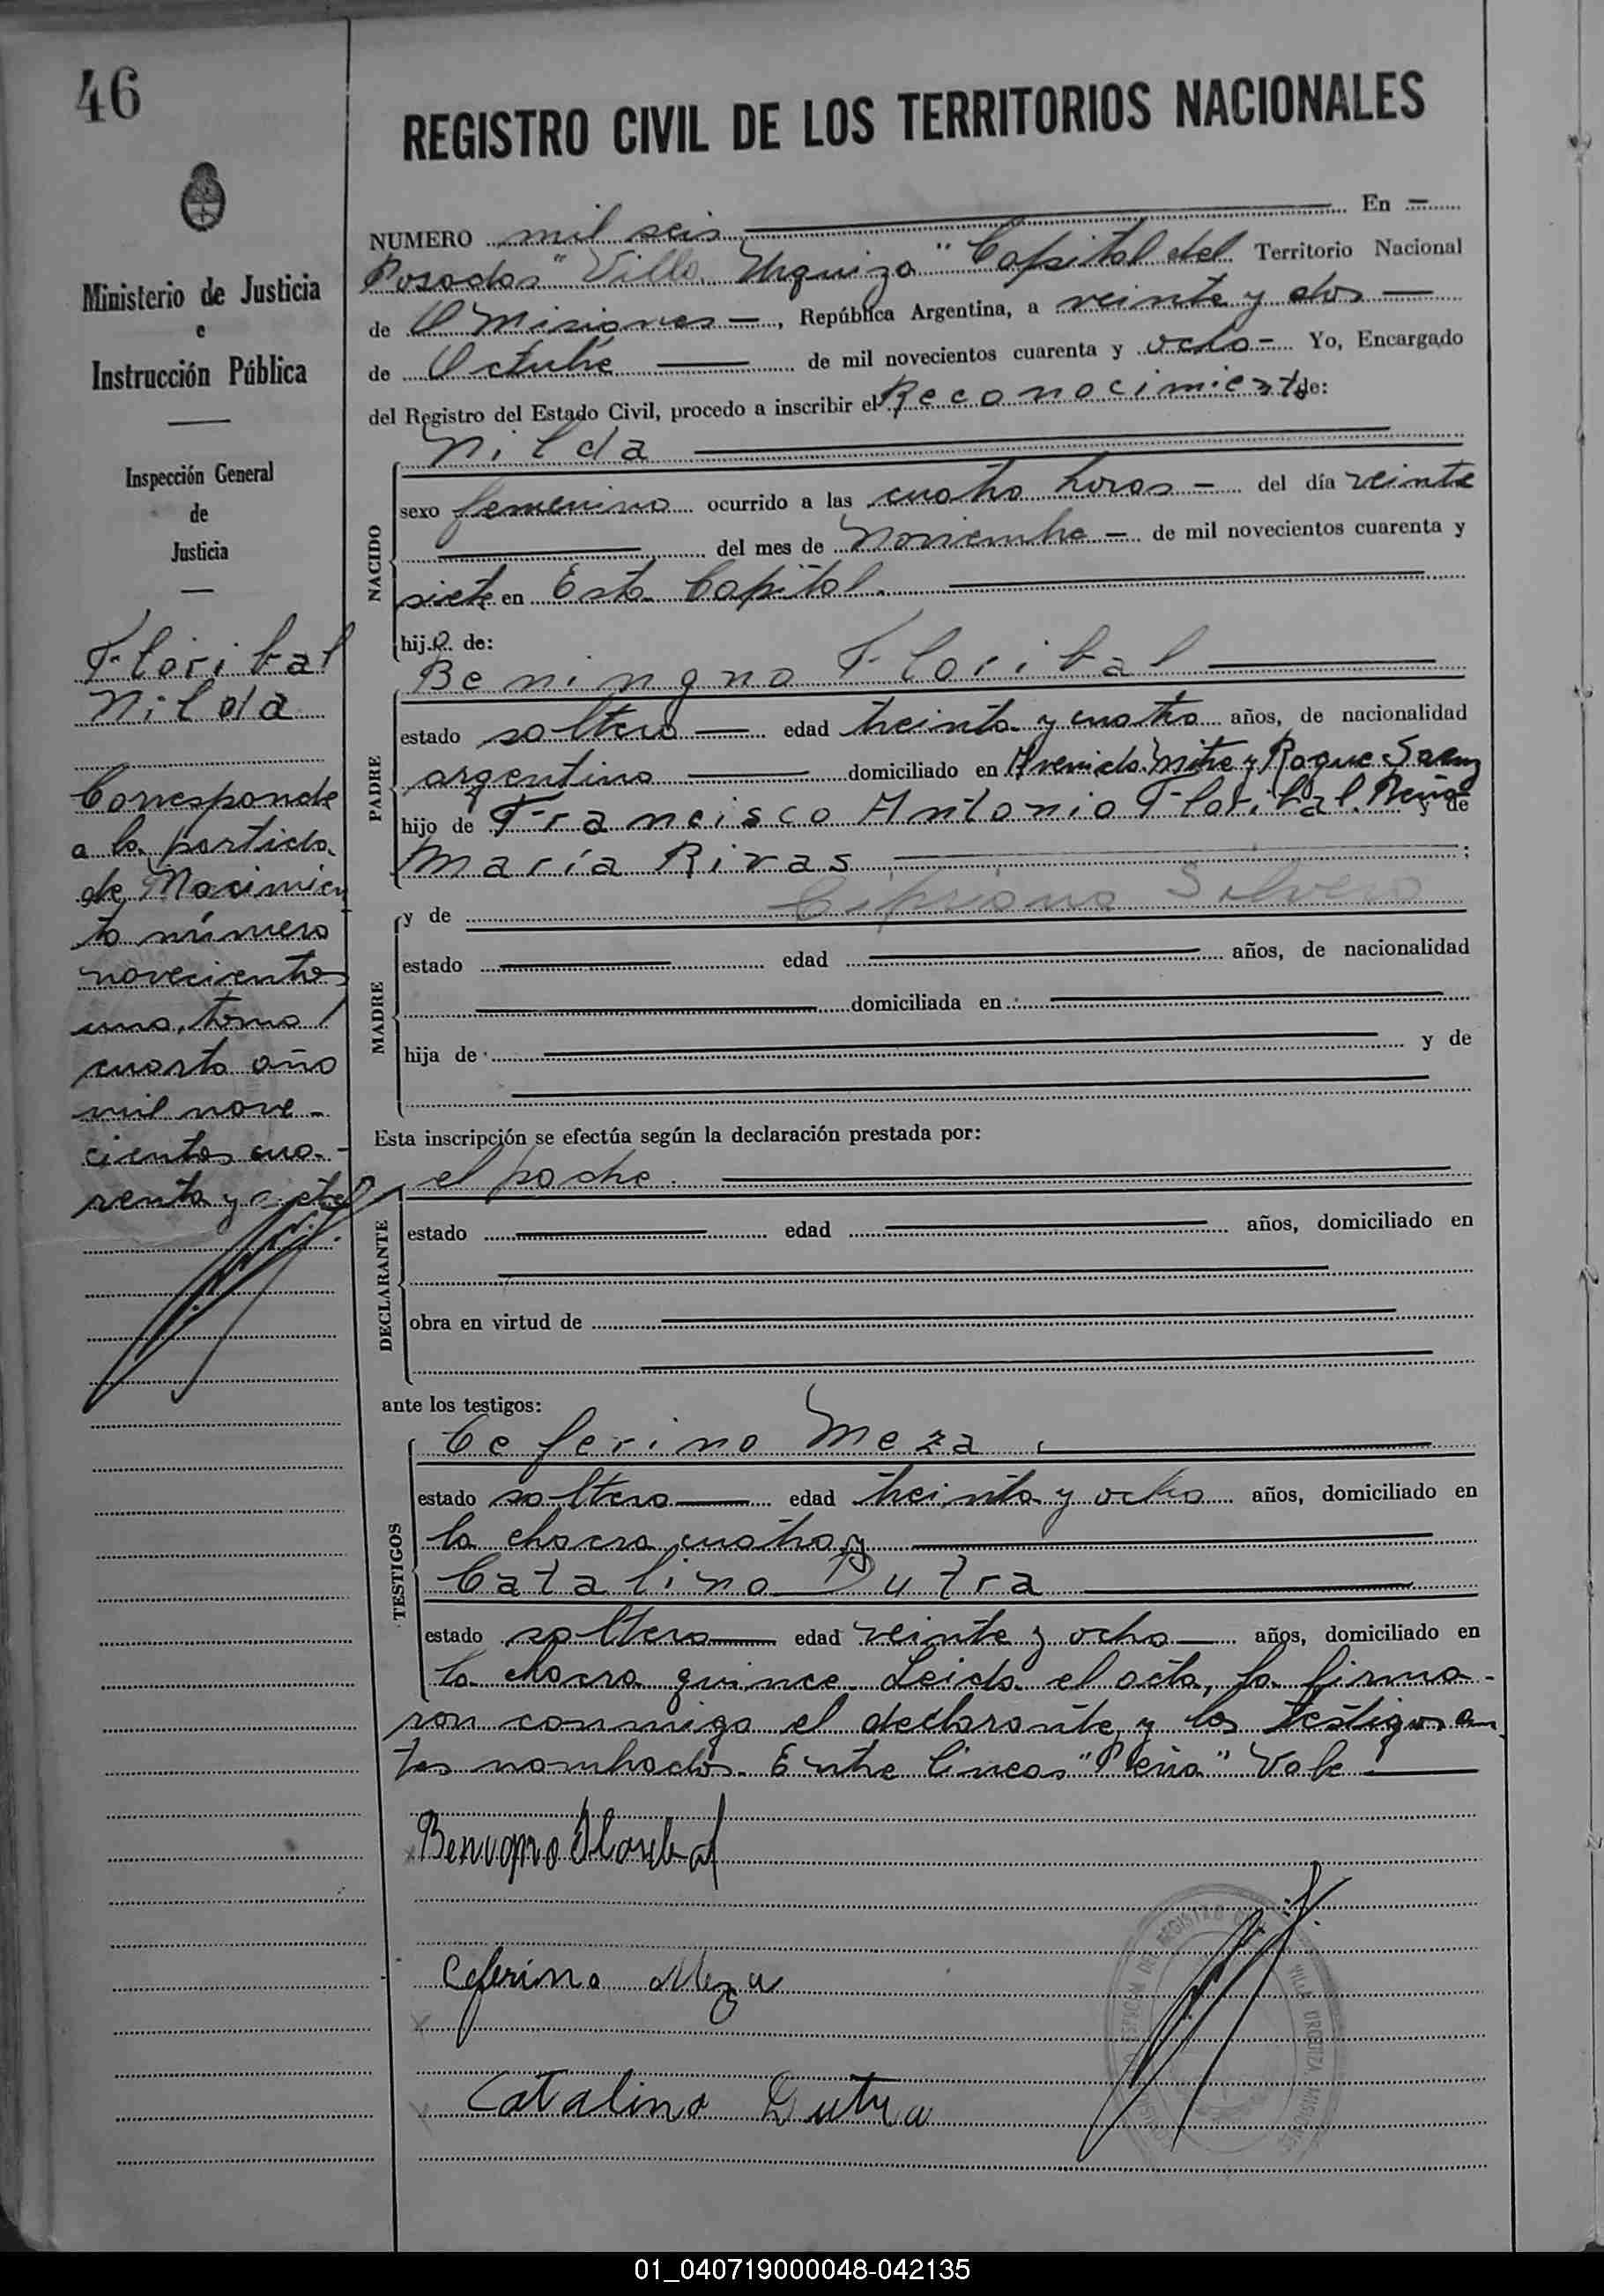 46
REGISTRO CIVIL DE LOS TERRITORIOS NACIONALES
Ministerio de Justicia
e
Instrucción Pública
Inspección General
de
Justicia
Floribal
Nilda
Corresponde
a la partida
de Nacimien
to número
novecientos
uno, tomo
cuarto año
mil nove-
cientos cua-
renta y siete
NUMERO mil seis En
Posadas "Villa Urquiza" Capital del Territorio Nacional
de Misiones, República Argentina, a veinte y dos
de Octubre de mil novecientos cuarenta y ocho Yo, Encargado
del Registro del Estado Civil, procedo a inscribir el Reconocimiento de:
Nilda
NACIDO
sexo femenino ocurrido a las cuatro horas del día veinte
del mes de Noviembre de mil novecientos cuarenta y
siete en Esta Capital.
hija de:
Beningno Floribal
PADRE
estado soltero edad treinta y cuatro años, de nacionalidad
argentino domiciliado en Avenida Mitre y Roque Saenz
Peña
hijo de Francisco Antonio Floribal y de
María Rivas ;
y de Cipriana Silvero
MADRE
estado edad años, de nacionalidad
domiciliada en
hija de y de
Esta inscripción se efectúa según la declaración prestada por:
el padre.
DECLARANTE
estado edad años, domiciliado en
obra en virtud de
ante los testigos:
Ceferino Meza
TESTIGOS
estado soltero edad treinta y ocho años, domiciliado en
la chacra cuatro y
Catalino Dutra
estado soltero edad veinte y ocho años, domiciliado en
la chacra quince. Leida el acta, la firma-
ron conmigo el declarante y los testigos an-
tes nombrados. Entre lineas "Peña" Vale.
Benigno Floribal
Ceferino Meza
Catalino Dutra
VILLA URQUIZA, MISIONES
01_040719000048-042135